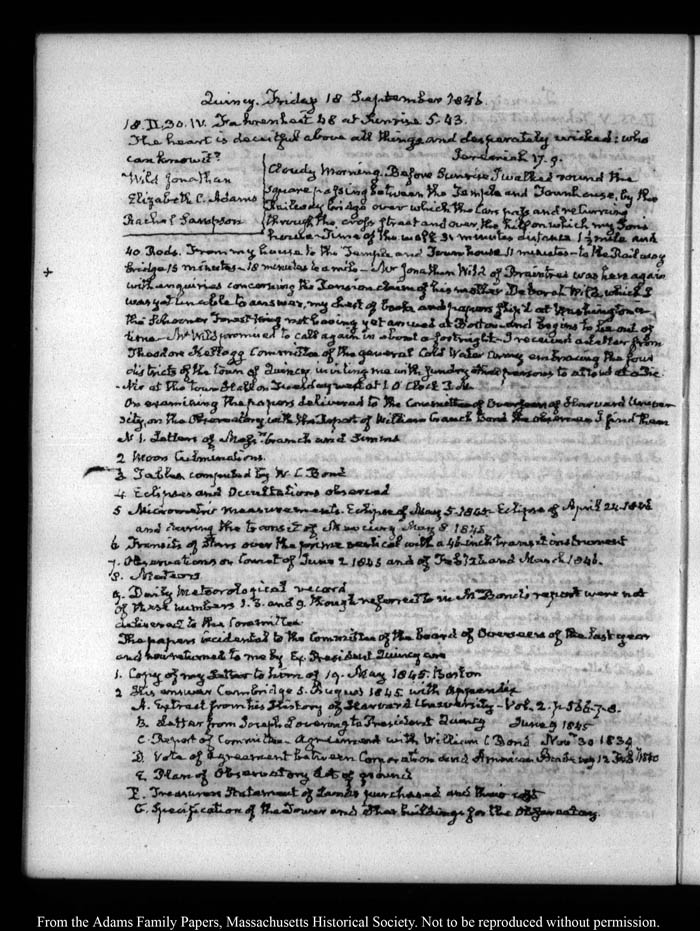 Quincy. Friday 18 September 1846.
18. II. 30. IV. Fahrenheit 48 at Sunrise 5-43.
The heart is deceitful above all things and desperately wicked: who
can know it?
Jeremiah 17. 9.
Wild Jonathan
Elizabeth C. Adams
Rachel Sampson
Cloudy Morning. Before Sunrise I walked round the
square passing between the Temple and Townhouse, by the
Railway bridge over which the Cars pass and returning
through the cross street and over the hill on which my Sons
house- Time of the walk 31 minutes distance 1½ mile and
40 Rods. From my house to the Temple and Town house 11 minutes- to the Railway
bridge 15 minutes- 18 minutes to a mile- Mr Jonathan Wild of Braintree was here again
with enquiries concerning the Pension claim of his mother Deborah Wild, which I
was yet unable to answer, my chest of books and papers ship'd at Washington on
the Schooner Forest King not having yet arrived at Boston and begins to be out of
time- Mr Wild promised to call again in about a fortnight- I received a letter from
Theodore Kellogg Committee of the general Cold Water Army embracing the four
districts of the town of Quincy inviting me with sundry other persons to attend at a Pic
Nic at the Town Hall on Tuesday next at 1 O'Clock P.M.
On examining the papers delivered to the Committee of Overseers of Harvard Univer
sity, on the Observatory with the Report of William Cranch Bond the observer I find them
N 1. Letters of Messrs. Branch and Simms
2 Moon Culminations.
3 Tables computed by W. C Bond
4 Eclipses and Occultations observed
5 Micrometric measurements. Eclipse of May 5. 1845- Eclipse of April 24. 1846
and during the transit of Mercury May 8 1845
6 Transits of Stars over the prime vertical with a 46 inch transit instrument
7. Observations on Comet of June 2 1845 and of Feby 26 and March 1846.
8. Meteors
9. Daily Meteorological record
of these numbers 1. 3. and 9. though referred to in Mr Bond's report were not
delivered to the Committee
The papers incidental to the Committee of the board of Overseers of the last year
and now returned to me by Ex. President Quincy are
1. Copy of my Letter to him of 19. May 1845. Boston
2 His answer Cambridge 5. August 1845 with Appendix
A. Extract from his History of Harvard University- Vol. 2. p 566-7-8.
B. Letter from Joseph Lovering to President Quincy June 9 1845
C. Report of Committee- Agreement with William C Bond Novr 30 1839
D. Vote of Agreement between Corporation and American Academy 12 Feby 1840
E. Plan of Observatory lot of ground
F. Treasurers Statement of Lands purchased and their cost
G. Specification of the Tower and other buildings for the Observatory.
From the Adams Family Papers, Massachusetts Historical Society. Not to be reproduced without permission.